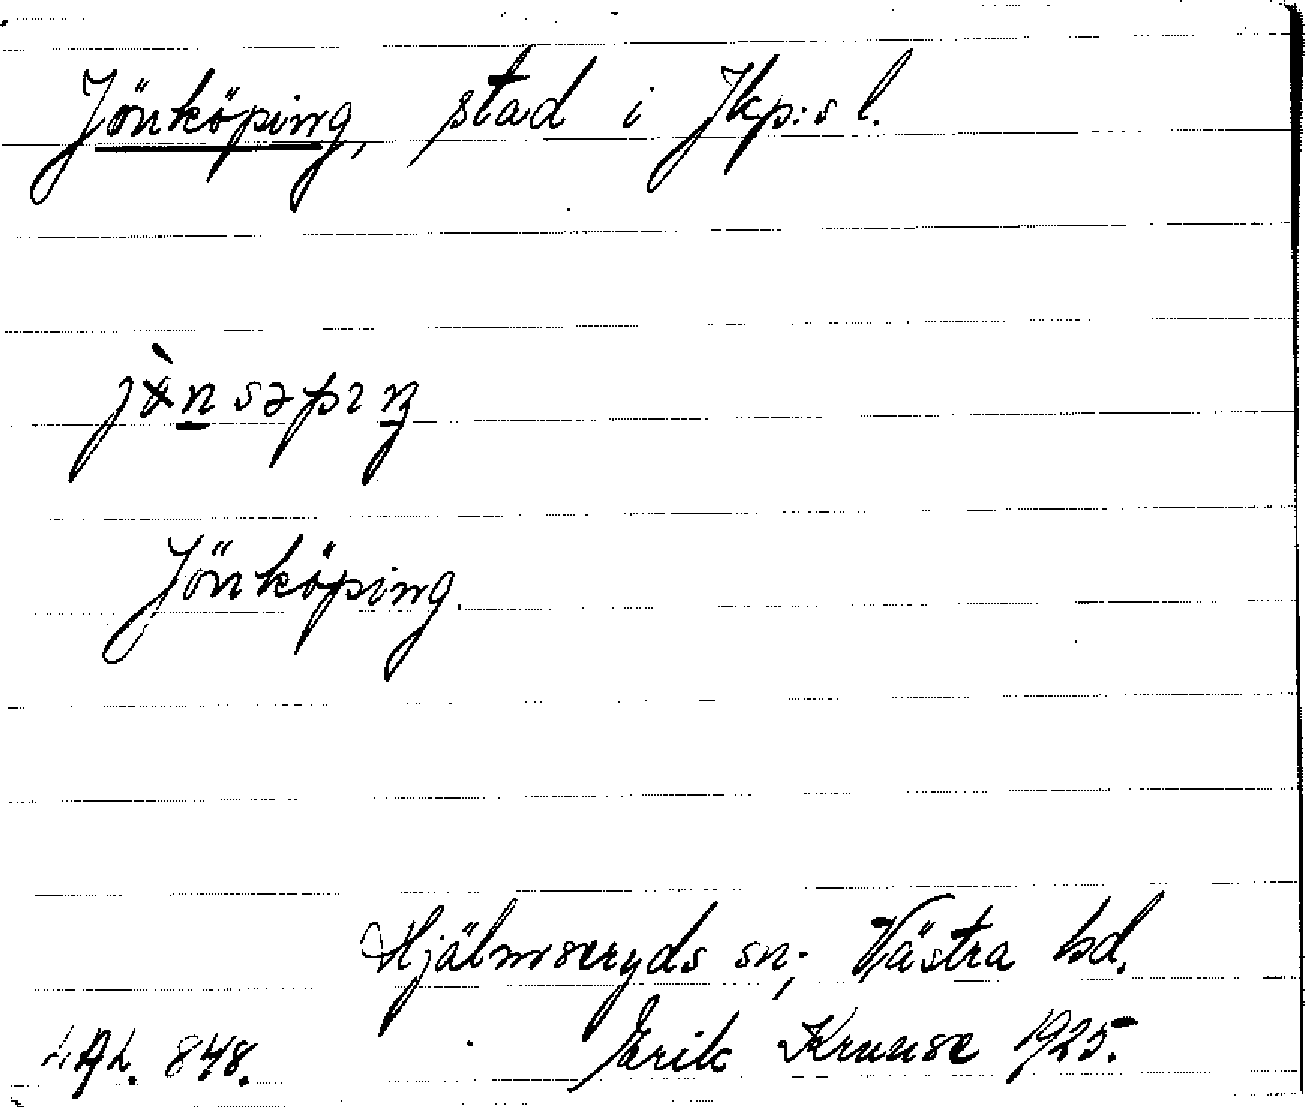 Jönköping, stad i Jkp:s l.
jö̀nsəpıŋ
Jönköping.
Hjälmseryds sn; Västra hd.
848. Erik Kruuse 1925.